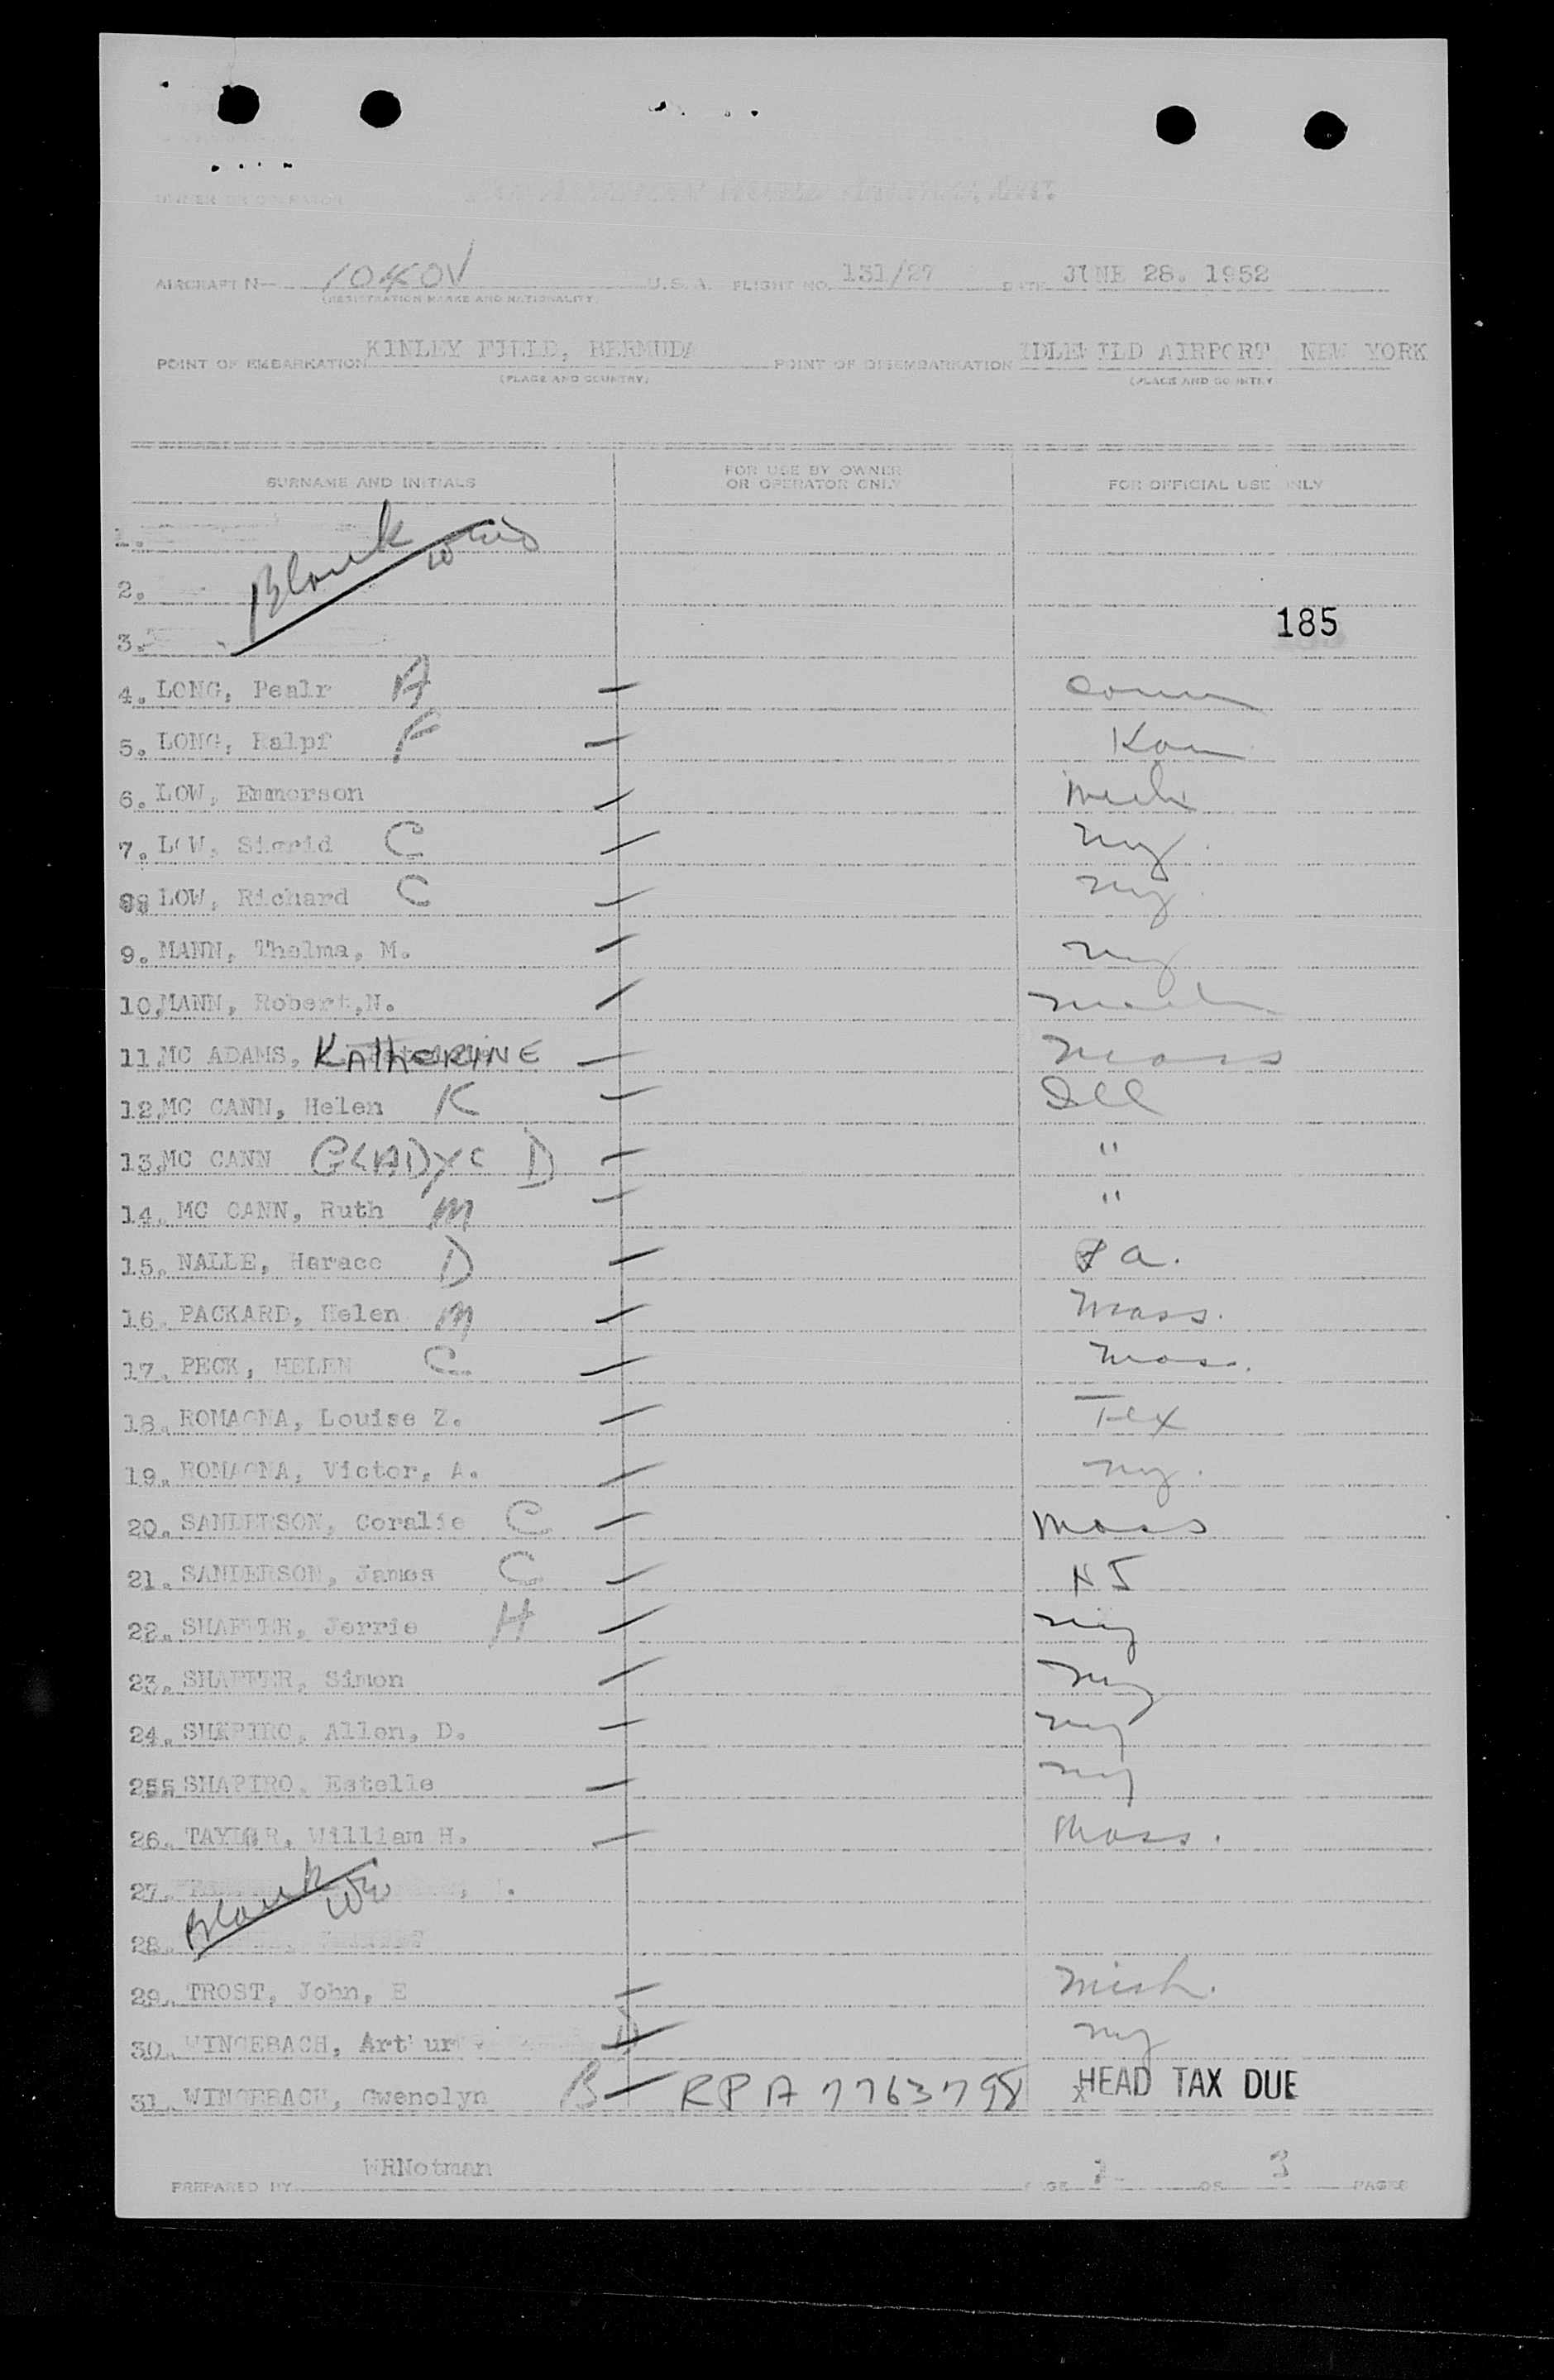 OWNER OR OPERATOR
AIRCRAFT N— 1040V U.S.A. FLIGHT NO. 131/27 DATE JUNE 28. 1952
(REGISTRATION MARKS AND NATIONALITY)
POINT OF EMBARKATION KINLEY FIELD, BERMUDA POINT OF DISEMBARKATION IDLEWILD AIRPORT NEW YORK
(PLACE AND COUNTRY) (PLACE AND COUNTRY
SURNAME AND INITIALS FOR USE BY OWNER OR OPERATOR ONLY FOR OFFICIAL USE ONLY
1.
Blank
2.
185
3.
4. LONG, Pealr A — Conn
5. LONG, Ralpf F — Kan
6. LOW, Emmerson — Mich
7. LOW, Sigrid C — ny.
8. LOW, Richard C — ny.
9. MANN, Thelma, M. — ny
10. MANN, Robert,N. —
11. MC ADAMS, KATHERINE — Mass
12. MC CANN, Helen K — Ill
13. MC CANN GLADYS D — "
14. MC CANN, Ruth M — "
15. NALLE, Harace D — Pa.
16. PACKARD, Helen M — Mass.
17. PECK, HELEN C — Mass.
18. ROMAGNA, Louise Z. — Tex
19. ROMAGNA, Victor, A. — ny.
20. SANDERSON, Coralie C — Mass
21. SANDERSON, James C — NJ
22. SHAFTER, Jerrie H — ny
23. SHAFTER, Simon — ny
24. SHAPIRO, Allen, D. — ny
25. SHAPIRO, Estelle — ny
26. TAYLOR, William H. — Mass.
27.
Blank
28.
29. TROST, John, E — Mich.
30. WINGEBACH, Arthur — ny
31. WINGEBACH, Gwenolyn B — RPA 7763798 HEAD TAX DUE
PREPARED BY WRNotman PAGE 2 OF 3 PAGES